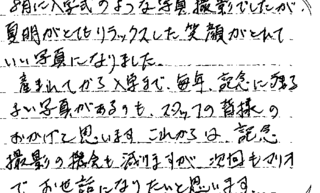 8月に入学式のような写真撮影でしたが、
真明がとてもリラックスした笑顔がとれて
いい写真になりました。
産まれてから入学まで、毎年、記念に残る
よい写真があるのも、スタッフの皆様の
おかげと思います。これからは、記念
撮影の機会も減りますが、次回もマリオ
で、お世話になりたいと思います。